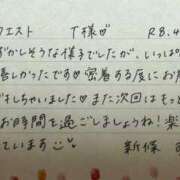 クエスト T様♡ R8.4
ずかしそうな様子でしたが、いっぱ
良しかったです♡密着する度にお
れしちゃいました♡また次回はもっ
お時間を過ごしましょうね!楽
ています
新條